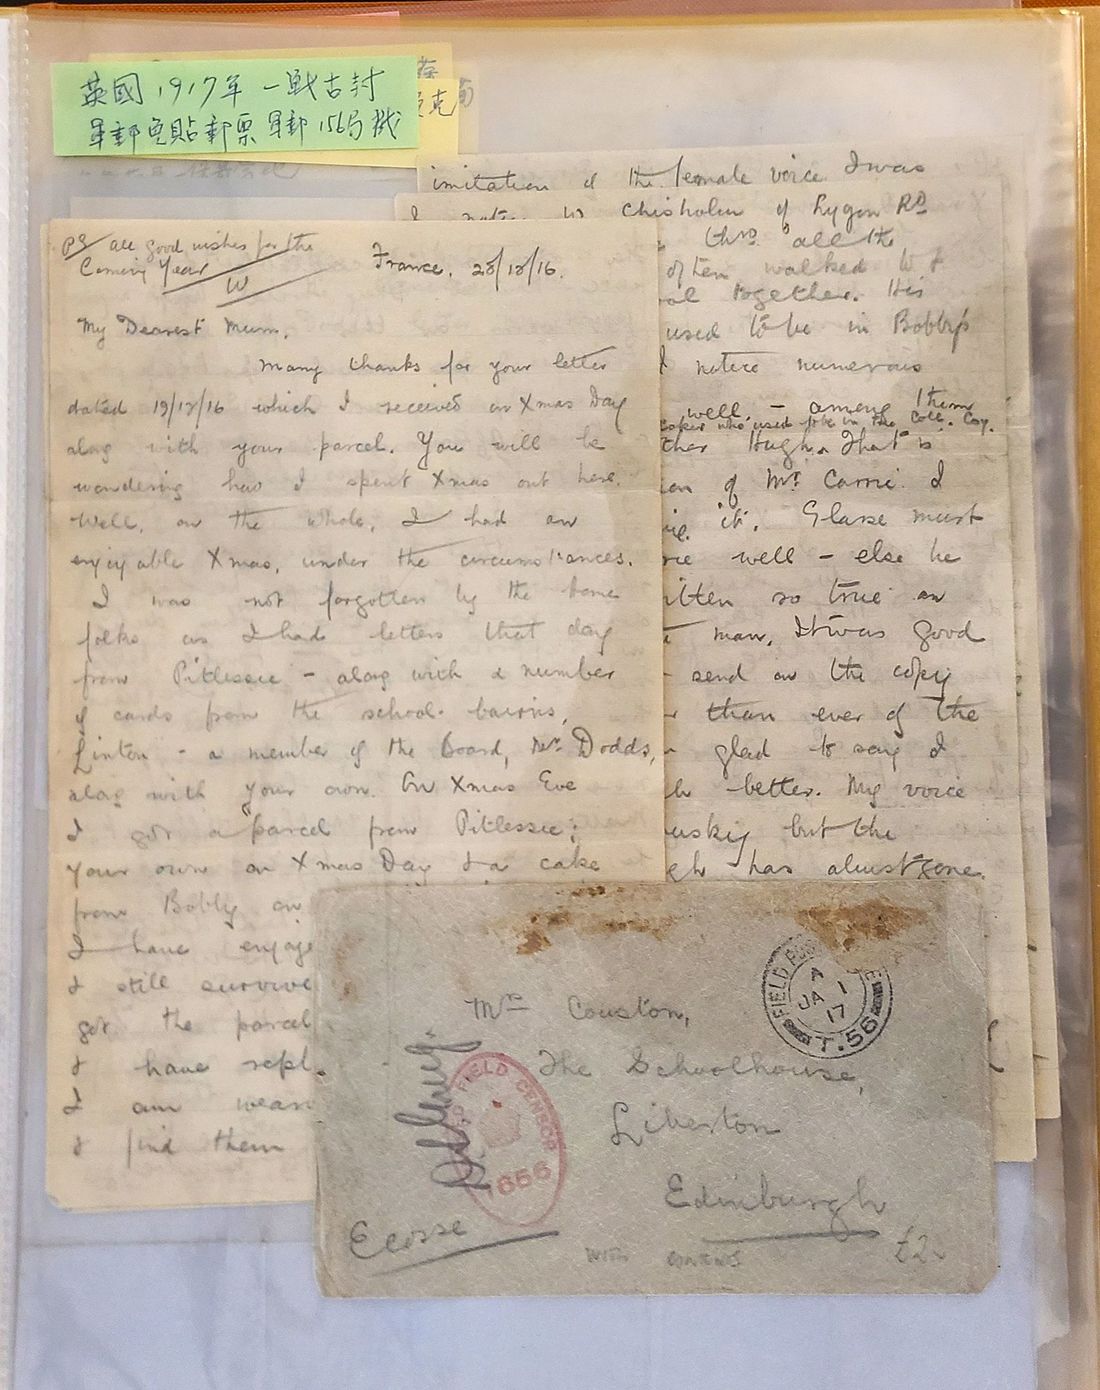 英國1917年一戰古封
軍郵免貼郵票軍郵156局戳
imitation of the female voice I was
Chisholm of Lygon Rd
thro' all the
often walked
together. His
used to be in Bobby's
I notice numerous
well - among them
who used to be in the Coll. Coy.
Hugh. That is
of Mr. Carrie. I
it. Glasse must
well - else he
so true an
man. It was good
send on the copy
than ever of the
glad to say I
better. My voice
but the
has almost gone.
PS all good wishes for the
Coming Year
W
France. 28/12/16.
My Dearest Mum,
Many thanks for your letter
dated 19/12/16 which I received on Xmas Day
along with your parcel. You will be
wondering how I spent Xmas out here.
Well, on the whole, I had an
enjoyable Xmas, under the circumstances.
I was not forgotten by the home
folks as I had letters that day
from Pitlessie - along with a number
of cards from the school bairns,
Linton - a member of the Board, Mr. Dodds,
along with your own. On Xmas Eve
I got a parcel from Pitlessie;
your own on Xmas Day & a cake
from Bobby on
I have
I still survive
got the parcel
I have
I am
I find them
FIELD POST
A
JA 1
17
T.56
Mrs Couston,
The Schoolhouse,
Liberton
Edinburgh
Ecosse
FIELD CENSOR
1656
WITH CONTENTS
£2